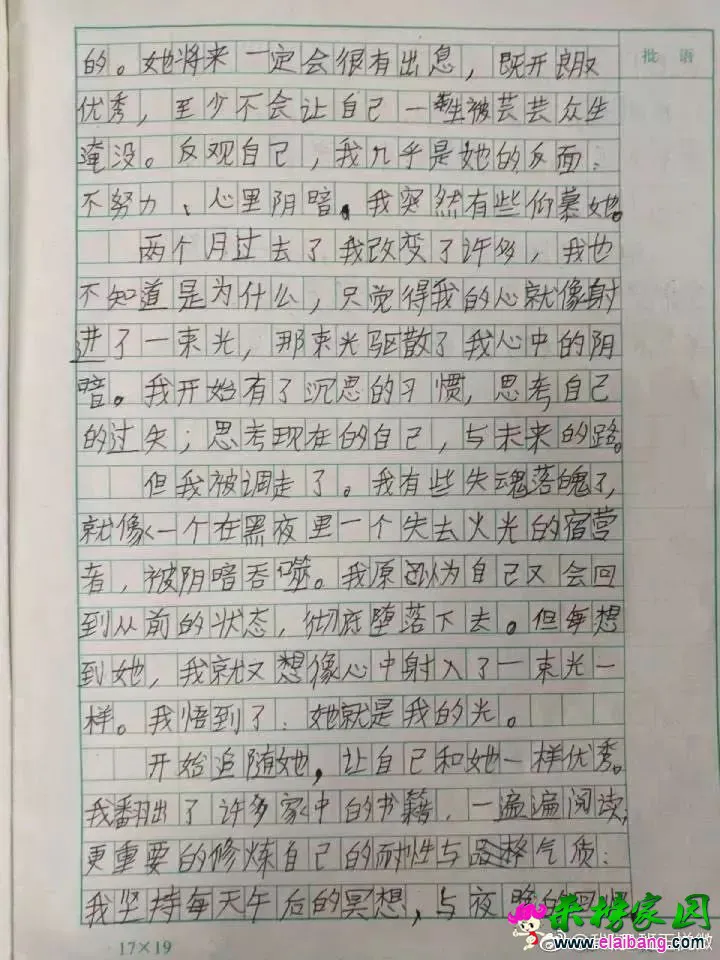 批 语
的。她将来一定会很有出息，既开朗又
优秀，至少不会让自己一生被芸芸众生
淹没。反观自己，我几乎是她的反面：
不努力、心里阴暗。我突然有些仰慕她。
两个月过去了我改变了许多，我也
不知道是为什么，只觉得我的心就像射
进了一束光，那束光驱散了我心中的阴
暗。我开始有了沉思的习惯，思考自己
的过失；思考现在的自己，与未来的路。
但我被调走了。我有些失魂落魄了，
就像一个在黑夜里一个失去火光的宿营
者，被阴暗吞噬。我原以为自己又会回
到从前的状态，彻底堕落下去。但每想
到她，我就又想像心中射入了一束光一
样。我悟到了：她就是我的光。
开始追随她，让自己和她一样优秀。
我翻出了许多家中的书籍，一遍遍阅读，
更重要的修炼自己的耐性与品格气质：
我坚持每天午后的冥想，与夜晚的
17×19
来榜家园
www.elaibang.com